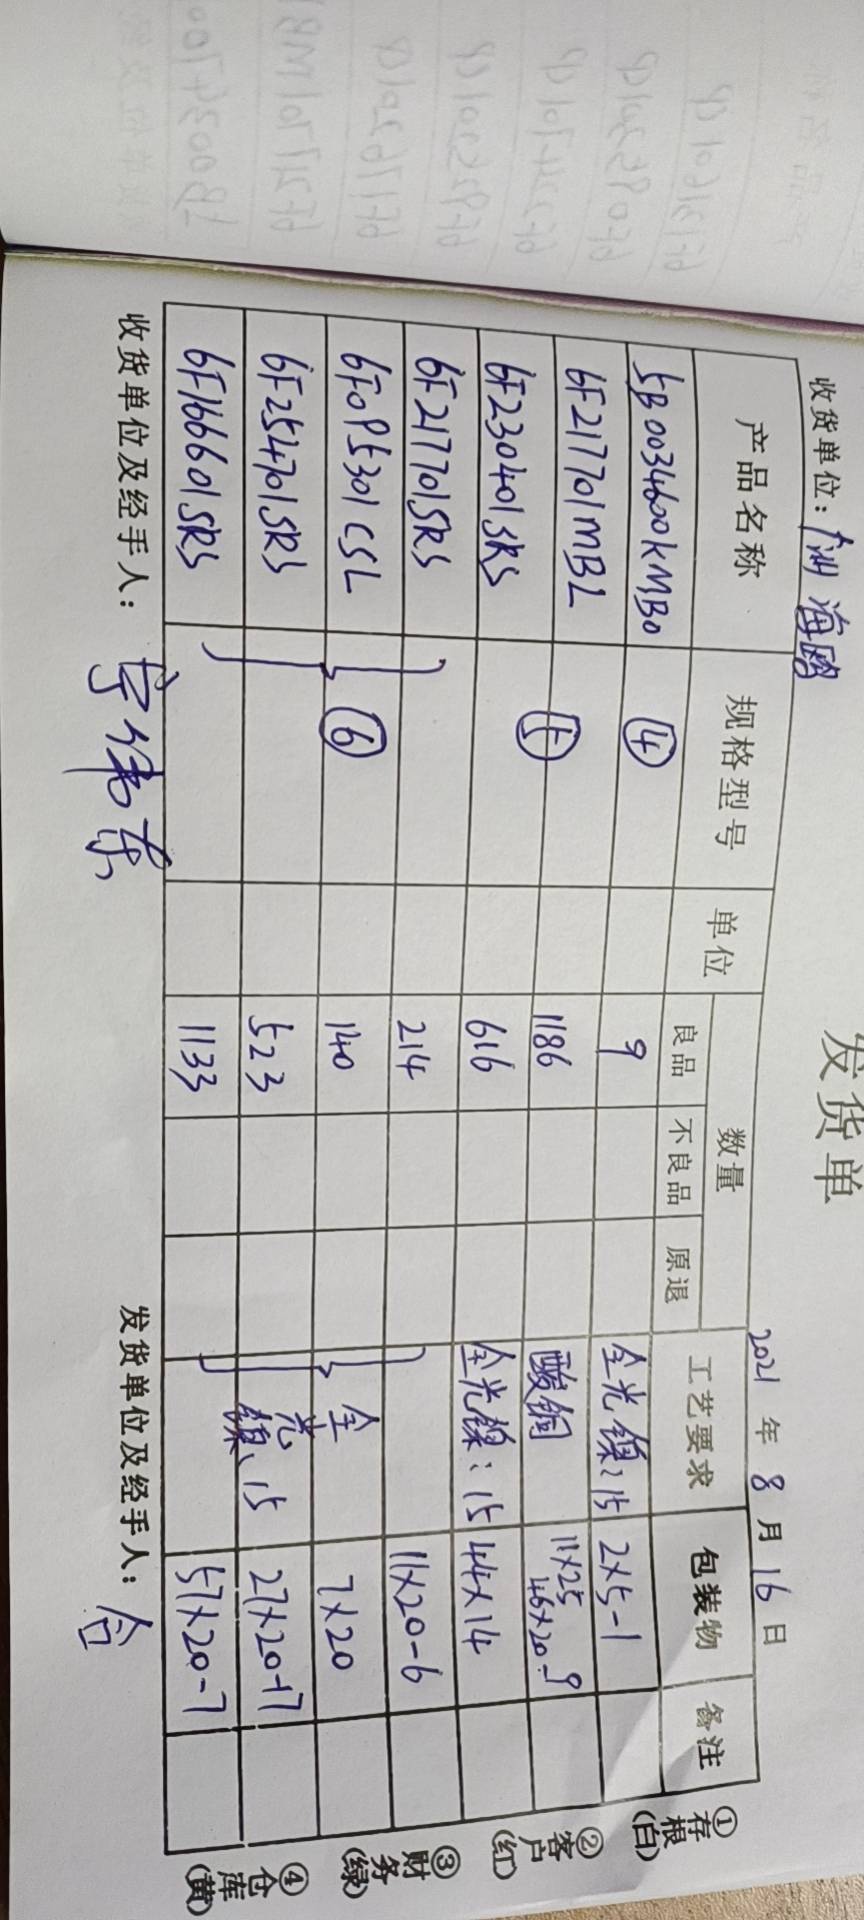 发货单
收货单位：广州海鸥 2021年8月16日
产品名称 规格型号 单位 数量 工艺要求 包装物 备注
良品 不良品 原退
5B0034600KMB0 ④ 9 全光镍：15 2×5-1
6F217701MBL ⑤ 1186 酸铜 11×25
46×20-9
6F230401SRS 616 全光镍：15 44×14
6F217701SRS 214 11×20-6
6F0P5301CSL ⑥ 140 全光镍：15 7×20
6F254701SRS 523 27×20-17
6F166601SRS 1133 57×20-7
收货单位及经手人： 发货单位及经手人：
①存根(白)
②客户(红)
③财务(绿)
④仓库(黄)